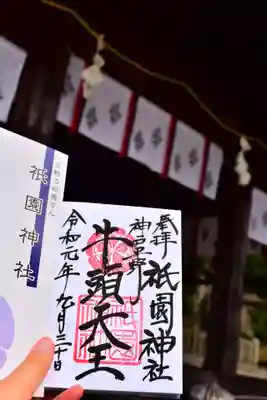 祇園神社
奉拝
神戸平野
祇園神社
牛頭天王
令和元年九月三十日